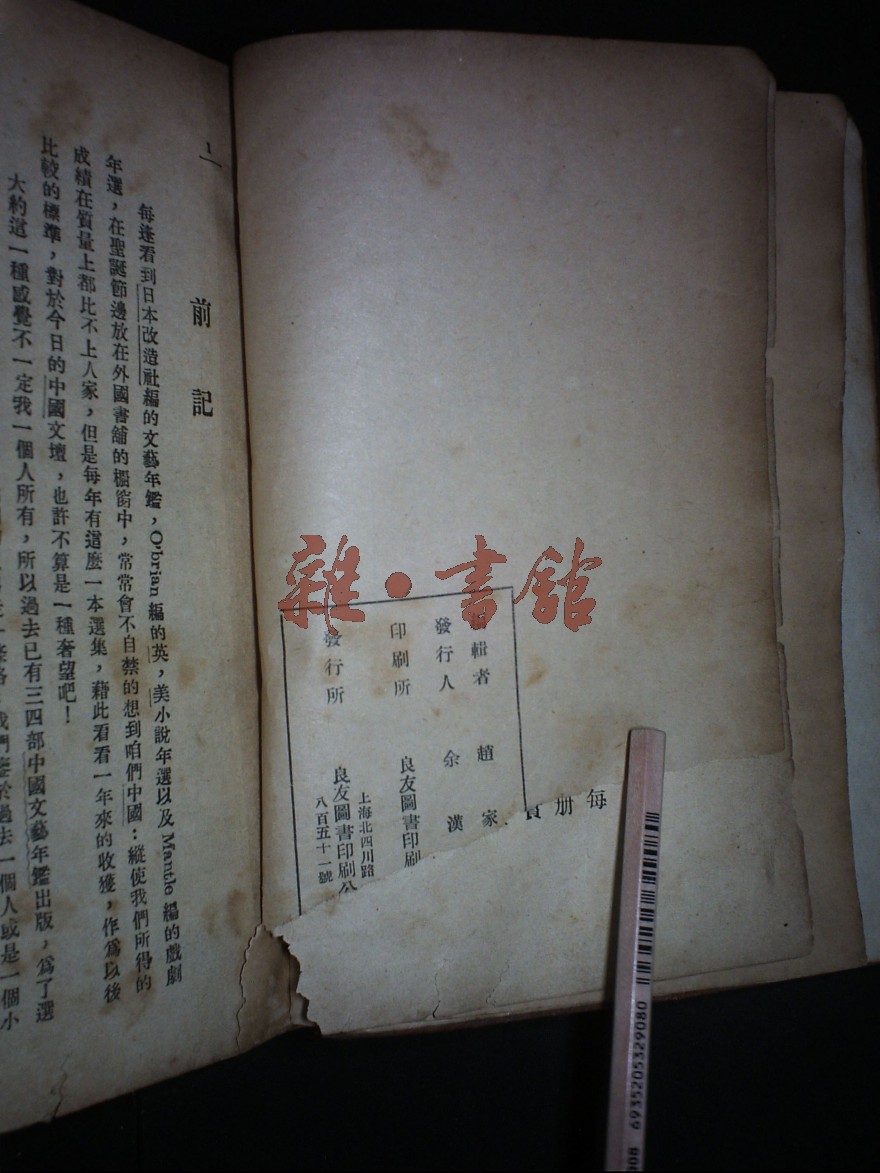 1
前記
每逢看到日本改造社編的文藝年鑑，O'brian 編的英，美小說年選以及 Mantle 編的戲劇
年選，在聖誕節邊放在外國書舖的櫥窗中，常常會不自禁的想到咱們中國：縱使我們所得的
成績在質量上都比不上人家，但是每年有這麼一本選集，藉此看看一年來的收獲，作爲以後
比較的標準，對於今日的中國文壇，也許不算是一種奢望吧！
大約這一種感覺不一定我一個人所有，所以過去已有三四部中國文藝年鑑出版，爲了選
我們鑒於過去一個人或是一個小
雜·書館
每册
編輯者 趙家
發行人 余漢
印刷所 良友圖書印刷
發行所 良友圖書印刷公
上海北四川路
八百五十一號
6935205329080